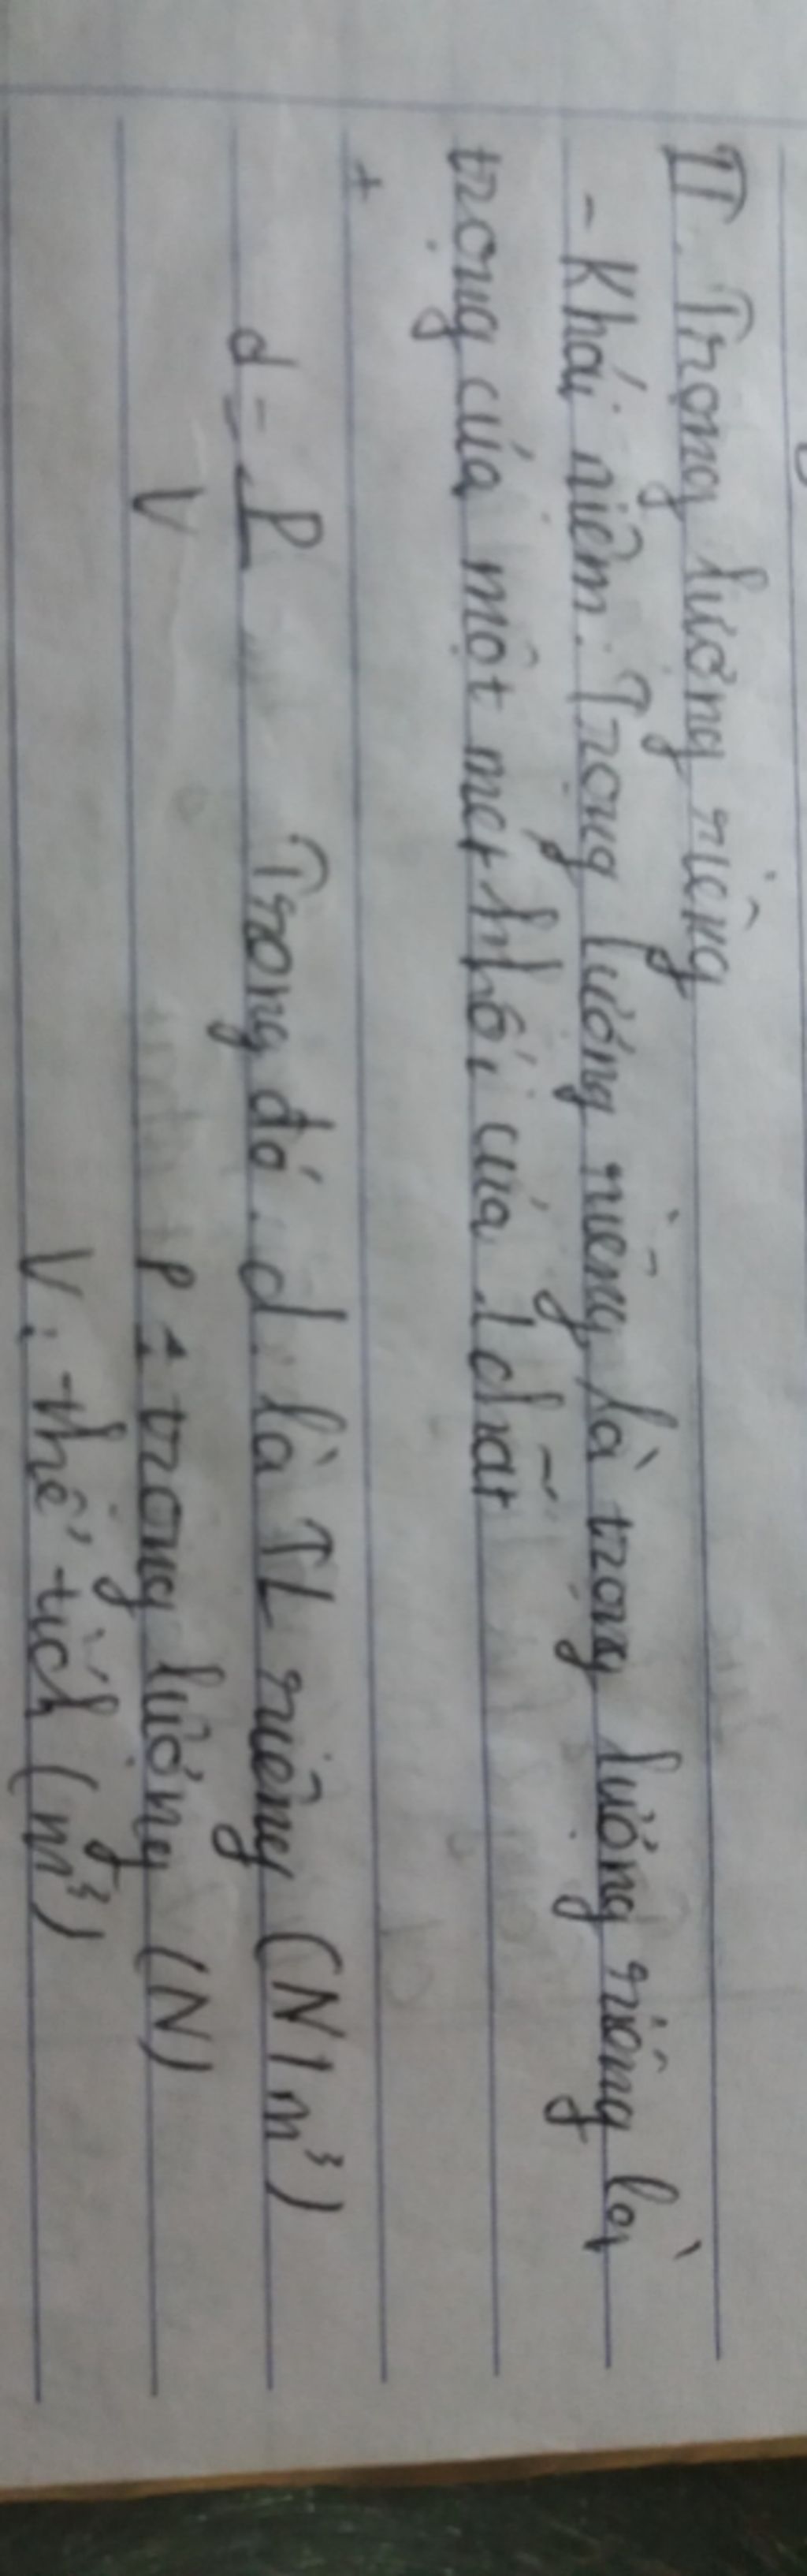 II. Trọng lượng riêng
- Khái niệm: Trọng lượng riêng là trọng lượng riêng là
trọng của một mét khối của 1 chất
+
d = P/V Trong đó: d: là TL riêng (N/m³)
P: trọng lượng (N)
V: thể tích (m³)